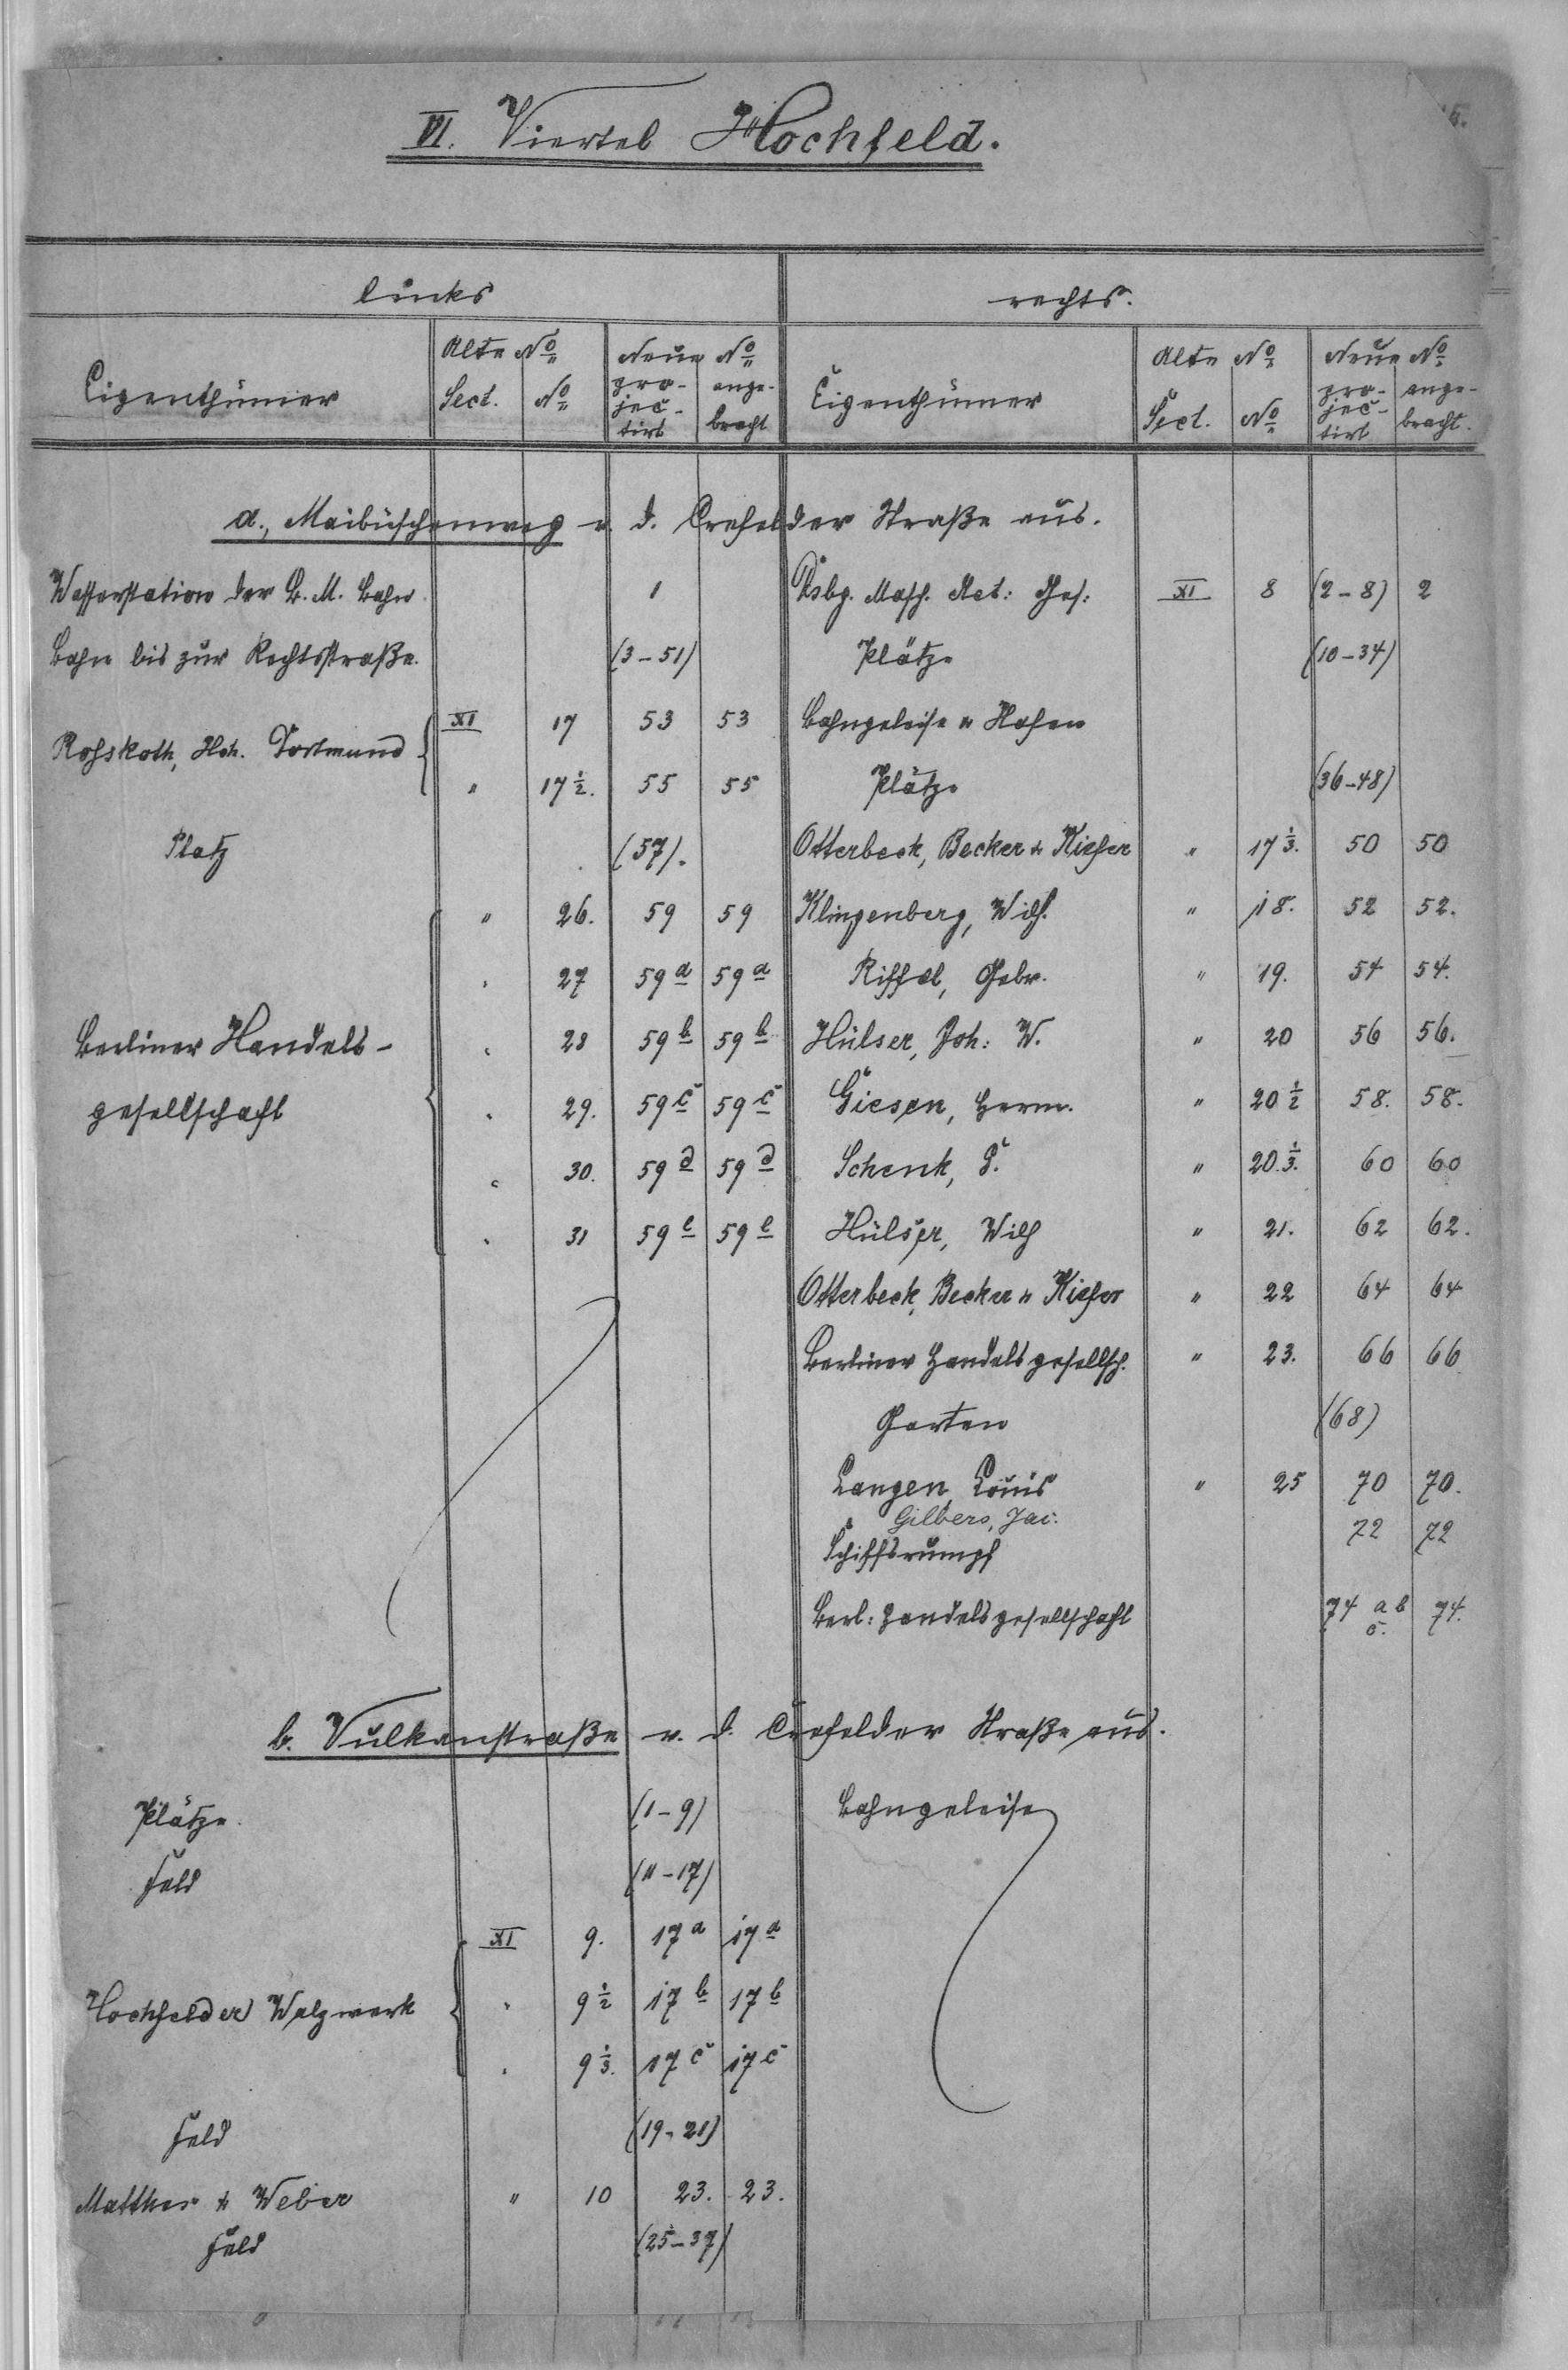 VI. Viertel Hochfeld.
links rechts.
Eigenthümer Alte No Neue No Eigenthümer Alte No Neue No
Sect. No pro- jec- tirt ange- bracht Sect. No pro- jec- tirt ange- bracht.
a., Maibüschenweg v. d. Crefelder Straße aus.
Wasserstation der B. M. Bahn 1 Dsbg. Masch. Act: Ges: XI 8 (2-8) 2
Bahn bis zur Rechtsstraße. (3-51) Plätze (10-34)
Roßkoth, Hch. Dortmund XI 17 53 53 Bahngeleise u Hafen
" 17 1/2. 55 55 Plätze (36-48)
Platz (57). Otterbeck, Becker & Kiefer " 17 1/3. 50 50
" 26. 59 59 Klingenberg, Wilh. " 18. 52 52.
" 27 59a 59a Riffel, Gebr. " 19. 54 54.
Berliner Handels- " 28 59b 59b Hülser, Joh: W. " 20 56 56.
gesellschaft " 29. 59c 59c Giesen, Herm. " 20 1/2 58. 58.
" 30. 59d 59d Schenk, " 20. 1/3. 60 60
" 31 59e 59e Hülser, Wilh " 21. 62 62.
Otterbeck, Becker u Kiefer " 22 64 64
Berliner Handelsgesellsch. " 23. 66 66
Garten (68)
Langen, Louis " 25 70 70.
Gilbers, Jac. 72 72
Schiffsrumpf
Berl: Handelsgesellschaft 74 a b c. 74.
b. Vulkanstraße v. d. Crefelder Straße aus.
Plätze. (1-9) Bahngeleise
Feld (11-17)
XI 9. 17a 17a
Hochfelder Walzwerk " 9 1/2 17b 17b
" 9 1/3. 17c 17c
Feld (19-21)
Matthes & Weber " 10 23. 23.
Feld (25-37)